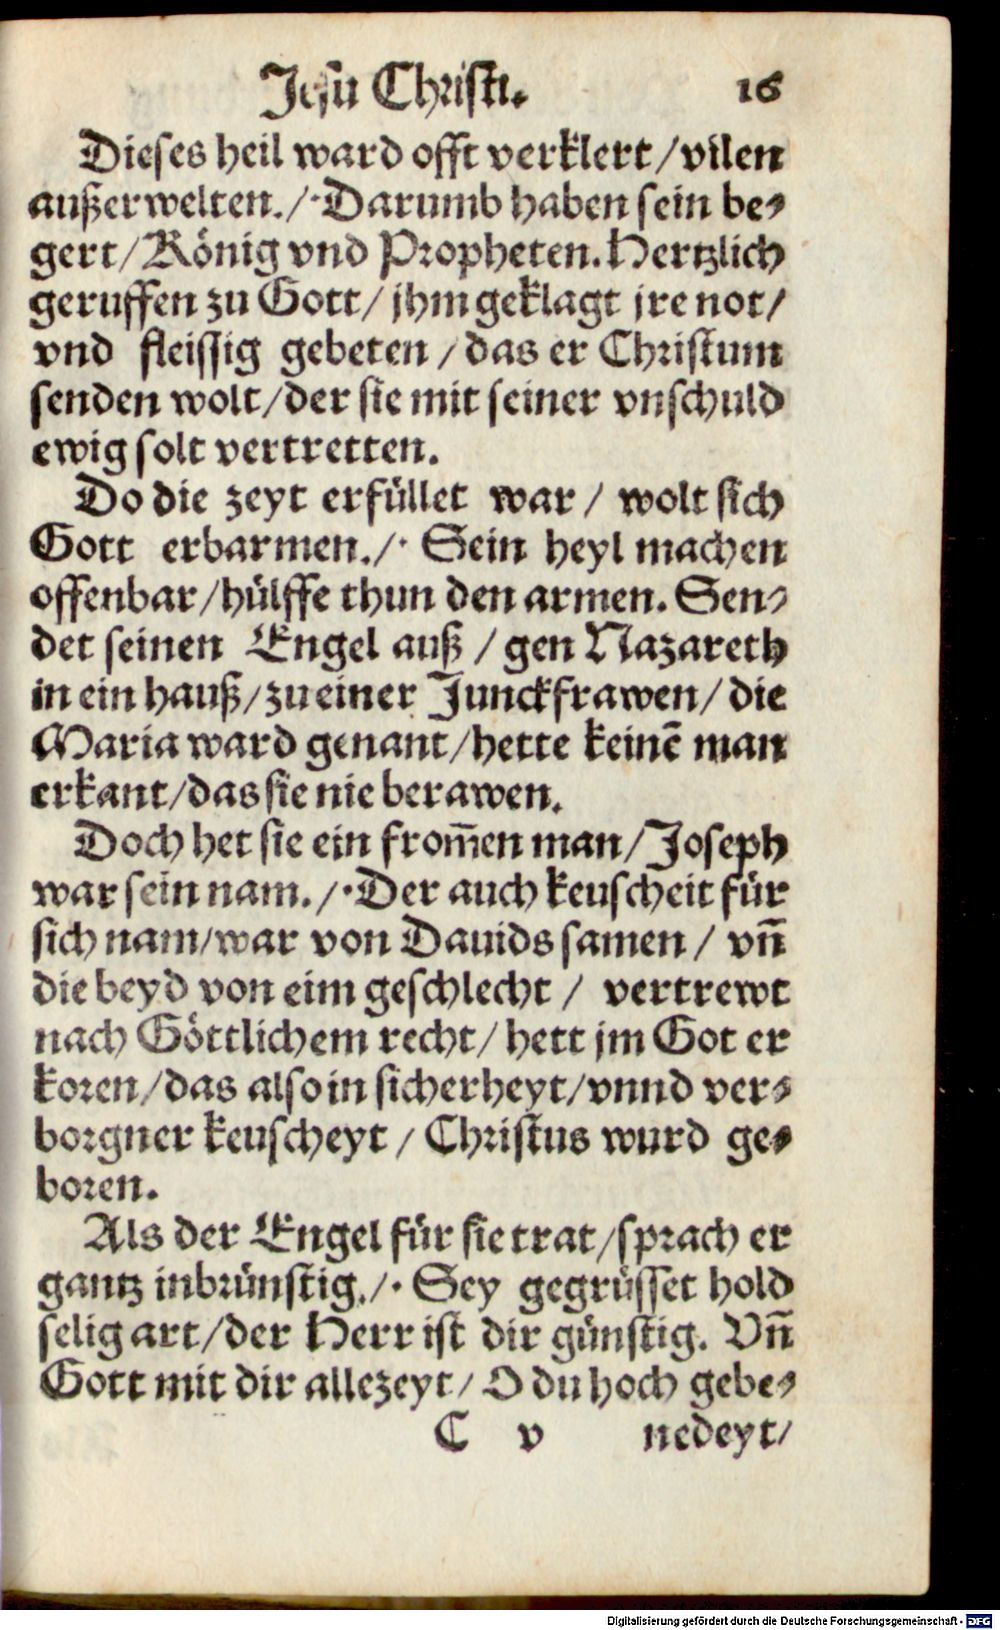 Jesu Christi. 16
Dieses heil ward offt verklert/vilen
außerwelten./·Darumb haben sein be-
gert/König vnd Propheten.Hertzlich
geruffen zu Gott/jhm geklagt jre not/
vnd fleissig gebeten/das er Christum
senden wolt/der sie mit seiner vnschuld
ewig solt vertretten.
Do die zeyt erfüllet war/ wolt sich
Gott erbarmen./· Sein heyl machen
offenbar/hülffe thun den armen. Sen-
det seinen Engel auß/gen Nazareth
in ein hauß/zu einer Junckfrawen/die
Maria ward genant/hette keinē man
erkant/das sie nie berawen.
Doch het sie ein from̄en man/Joseph
war sein nam./·Der auch keuscheit für
sich nam/war von Dauids samen/ vn̄
die beyd von eim geschlecht/ vertrewt
nach Göttlichem recht/hett jm Got er
koren/das also in sicherheyt/vnnd ver-
borgner keuscheyt/Christus wurd ge-
boren.
Als der Engel für sie trat/sprach er
gantz inbrünstig./· Sey gegrüsset hold
selig art/der Herr ist dir günstig. Vn̄
Gott mit dir allezeyt/O du hoch gebe-
C v nedeyt/
Digitalisierung gefördert durch die Deutsche Forschungsgemeinschaft - DFG